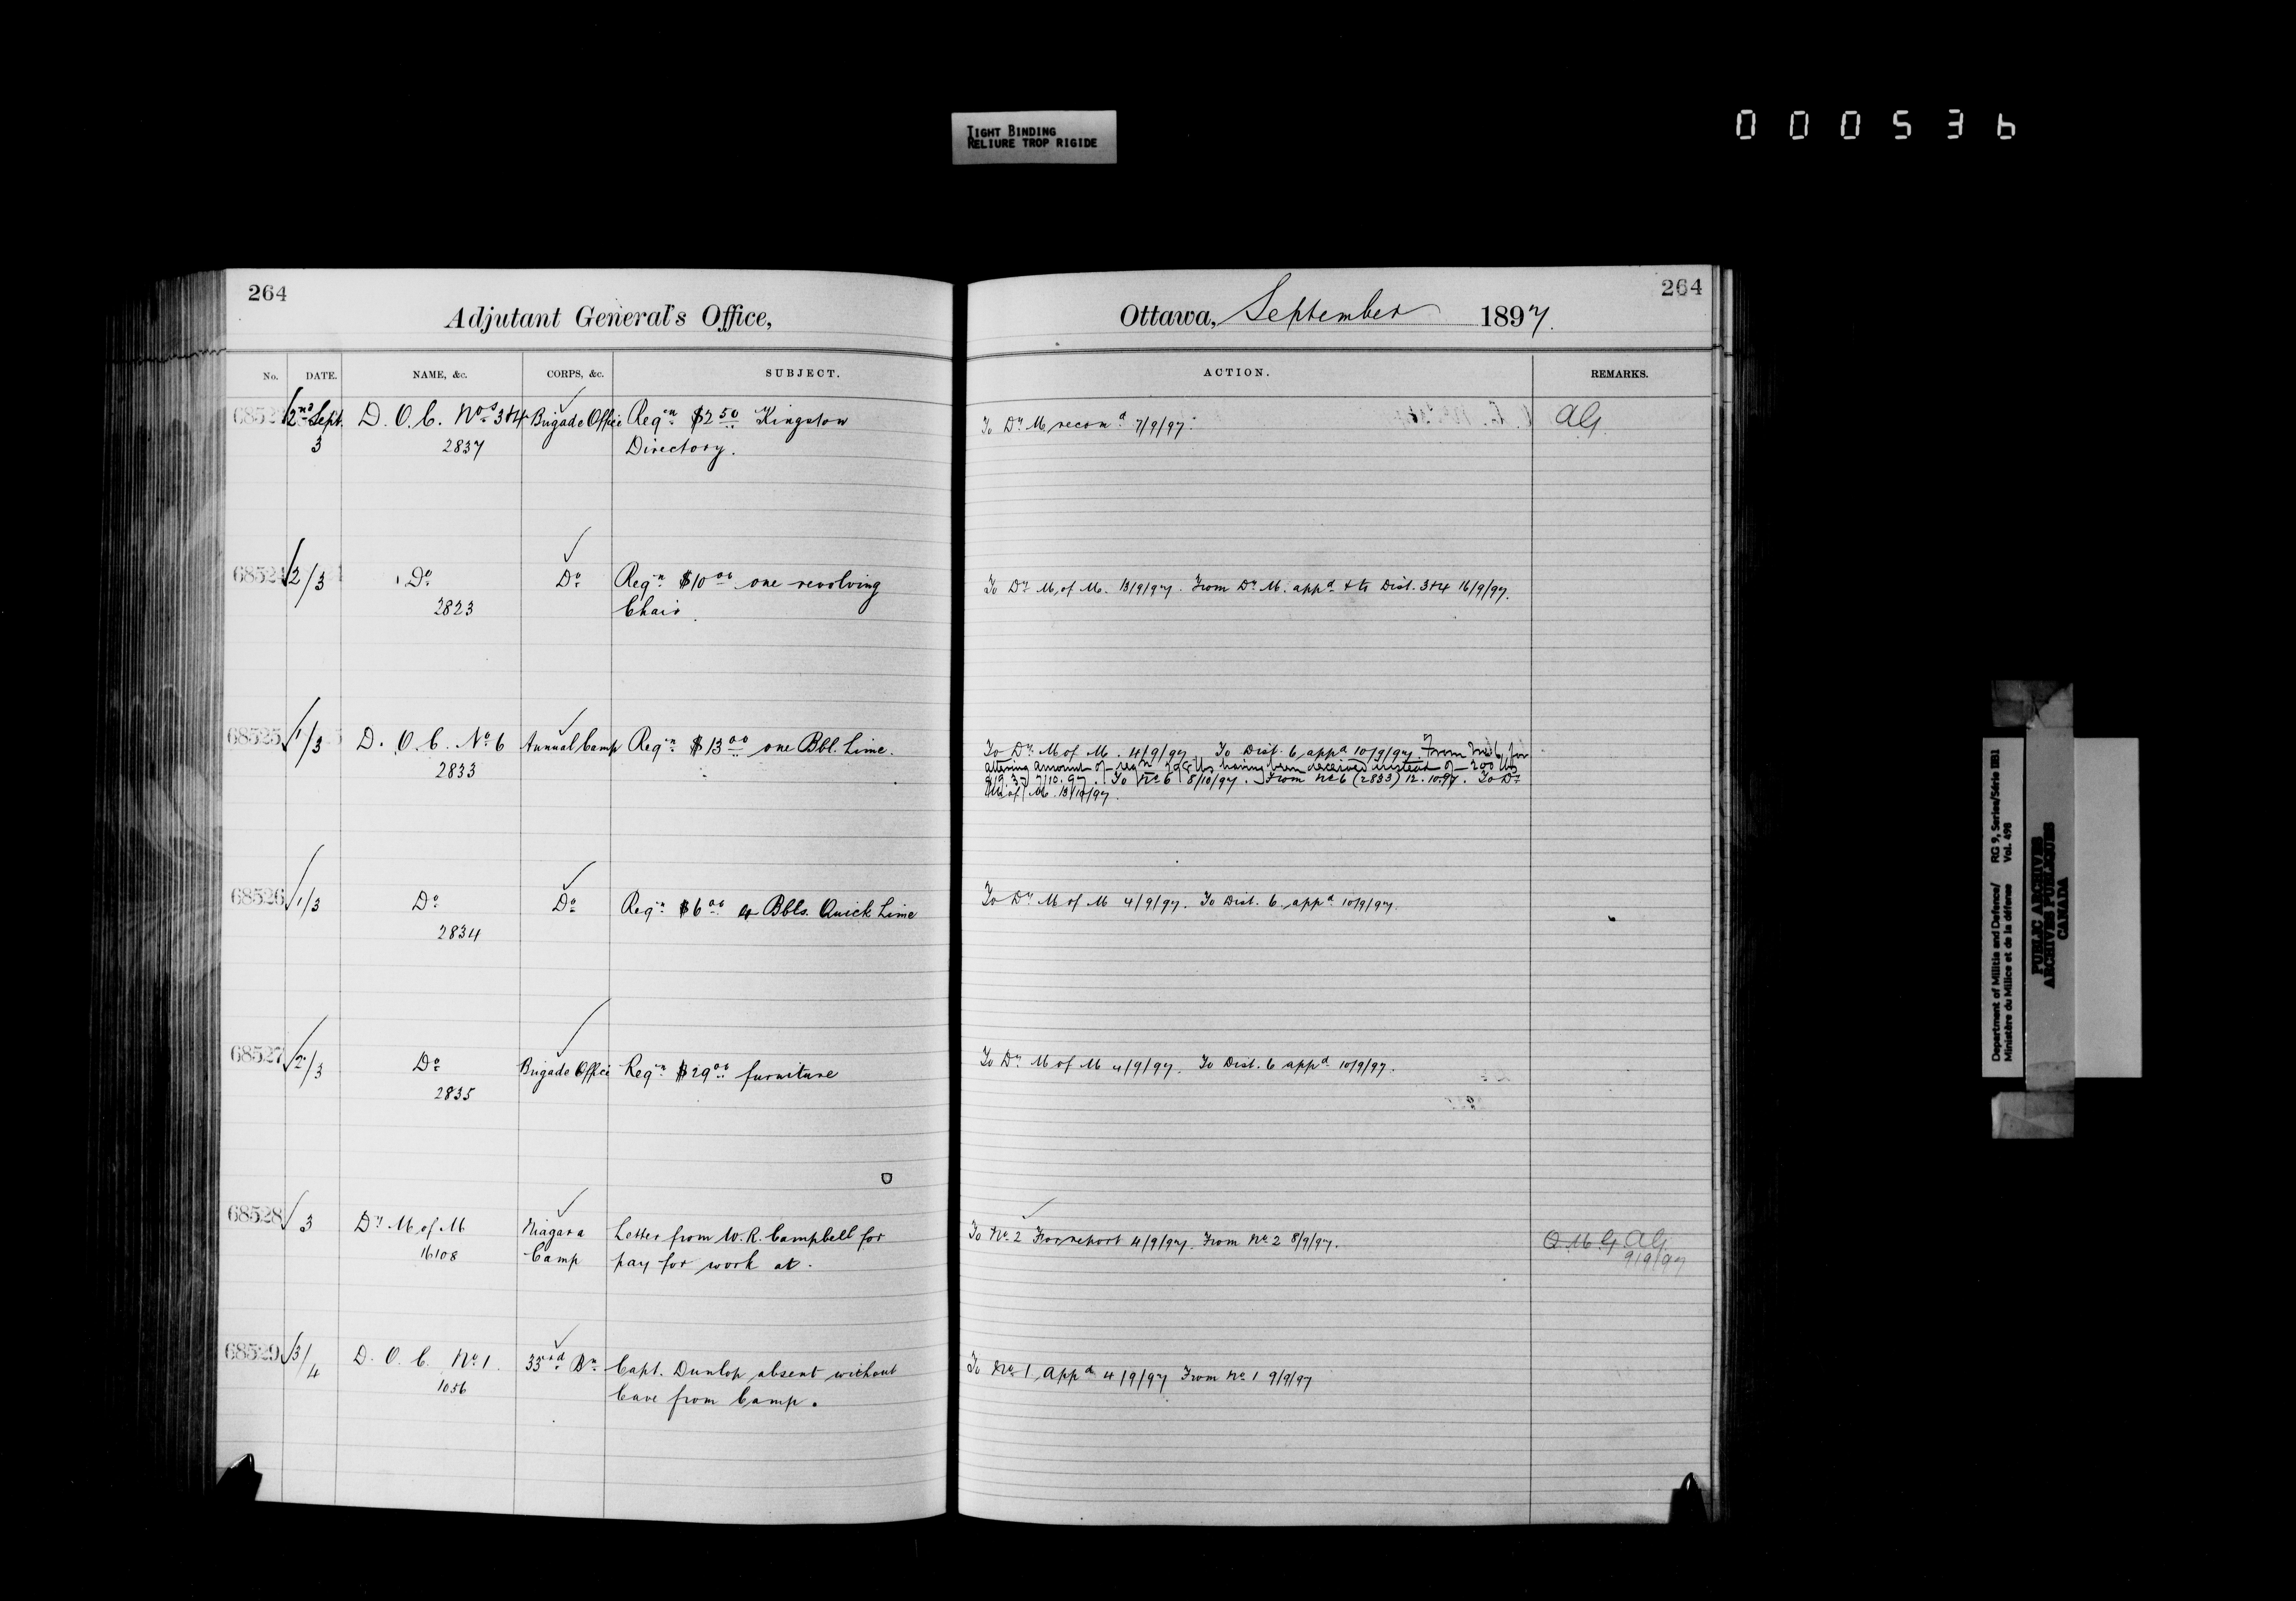 TIGHT BINDING
RELIURE TROP RIGIDE
000536
264
Adjutant General's Office,
No. DATE. NAME, &c. CORPS, &c. SUBJECT.
6852 2nd Sept. D. O. C. Nos 3&4 Brigade Office Reqn $2 50 Kingston
3 2837 Directory.
68524 2/3 Do Do Reqn $10 00 one revolving
2823 Chair.
68525 1/3 D. O. C. No 6 Annual Camp Reqn $13 00 one Bbl. Lime.
2833
68526 1/3 Do Do Reqn $6 00 4 Bbls. Quick Lime
2834
68527 2/3 Do Brigade Office Reqn $29 00 furniture
2835
68528 3 Dy M of M Niagara Letter from W. R. Campbell for
16108 Camp pay for work at.
68529 3/4 D. O. C. No 1. 33rd Bn Capt. Dunlop absent without
1056 leave from Camp.
264
Ottawa, September 1897.
ACTION. REMARKS.
To Dy M recomd 7/9/97. AG.
To Dy M. of M. 13/9/97. From Dy M. appd & to Dist. 3&4 16/9/97.
To Dy M of M. 4/9/97. To Dist. 6 appd 10/9/97 From No 6 for
altering amount of reqn lbs having been received instead of 200 lbs
7/10.97. To No 6 8/10/97. From No 6 (2833) 12.10.97. To Dy
M of M. 13/10/97.
To Dy M of M 4/9/97. To Dist. 6 appd 10/9/97.
To Dy M of M 4/9/97. To Dist. 6 appd 10/9/97.
To No 2 For report 4/9/97. From No 2 8/9/97. Q.M.G. AG
9/9/97
To No 1 Appd 4/9/97 From No 1 9/9/97
Department of Militia and Defence/ RG 9, Series/Série IIB1
Ministère du Milice et de la défense Vol. 498
PUBLIC ARCHIVES
ARCHIVES PUBLIQUES
CANADA